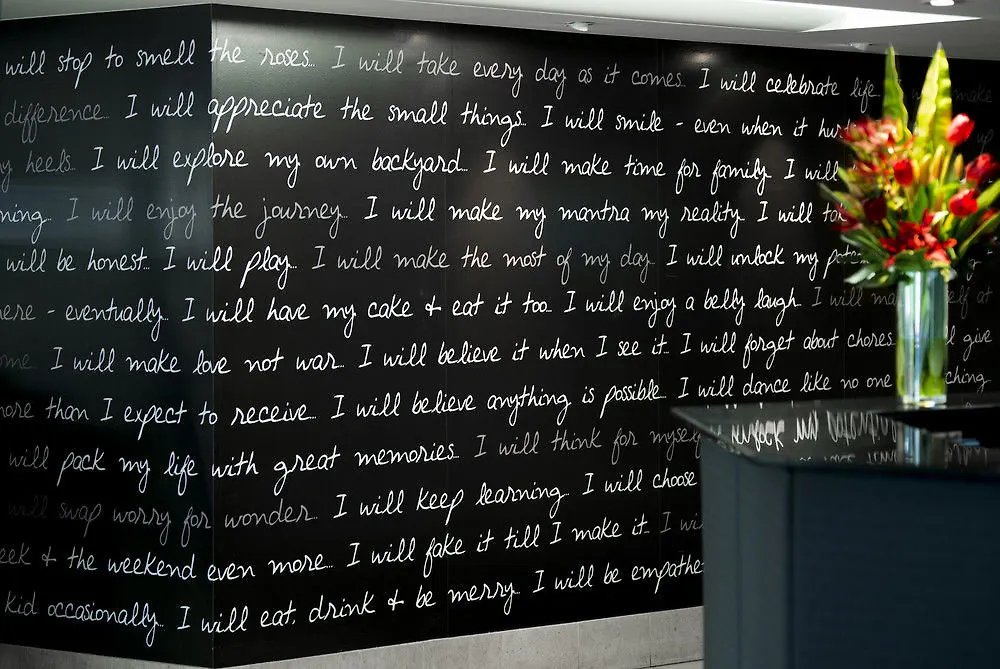 will stop to smell the roses... I will take every day as it comes... I will celebrate life
difference... I will appreciate the small things... I will smile - even when it hurt
heels... I will explore my own backyard... I will make time for family... I will
I will enjoy the journey... I will make my mantra my reality... I will
will be honest... I will play... I will make the most of my day... I will unlock my
- eventually... I will have my cake & eat it too... I will enjoy a belly laugh... I will at
I will make love not war... I will believe it when I see it... I will forget about chores... give
more than I expect to receive... I will believe anything is possible... I will dance like no one
will pack my life with great memories... I will think for
will swap worry for wonder... I will keep learning... I will choose
& the weekend even more... I will fake it till I make it... I
kid occasionally... I will eat, drink & be merry... I will be